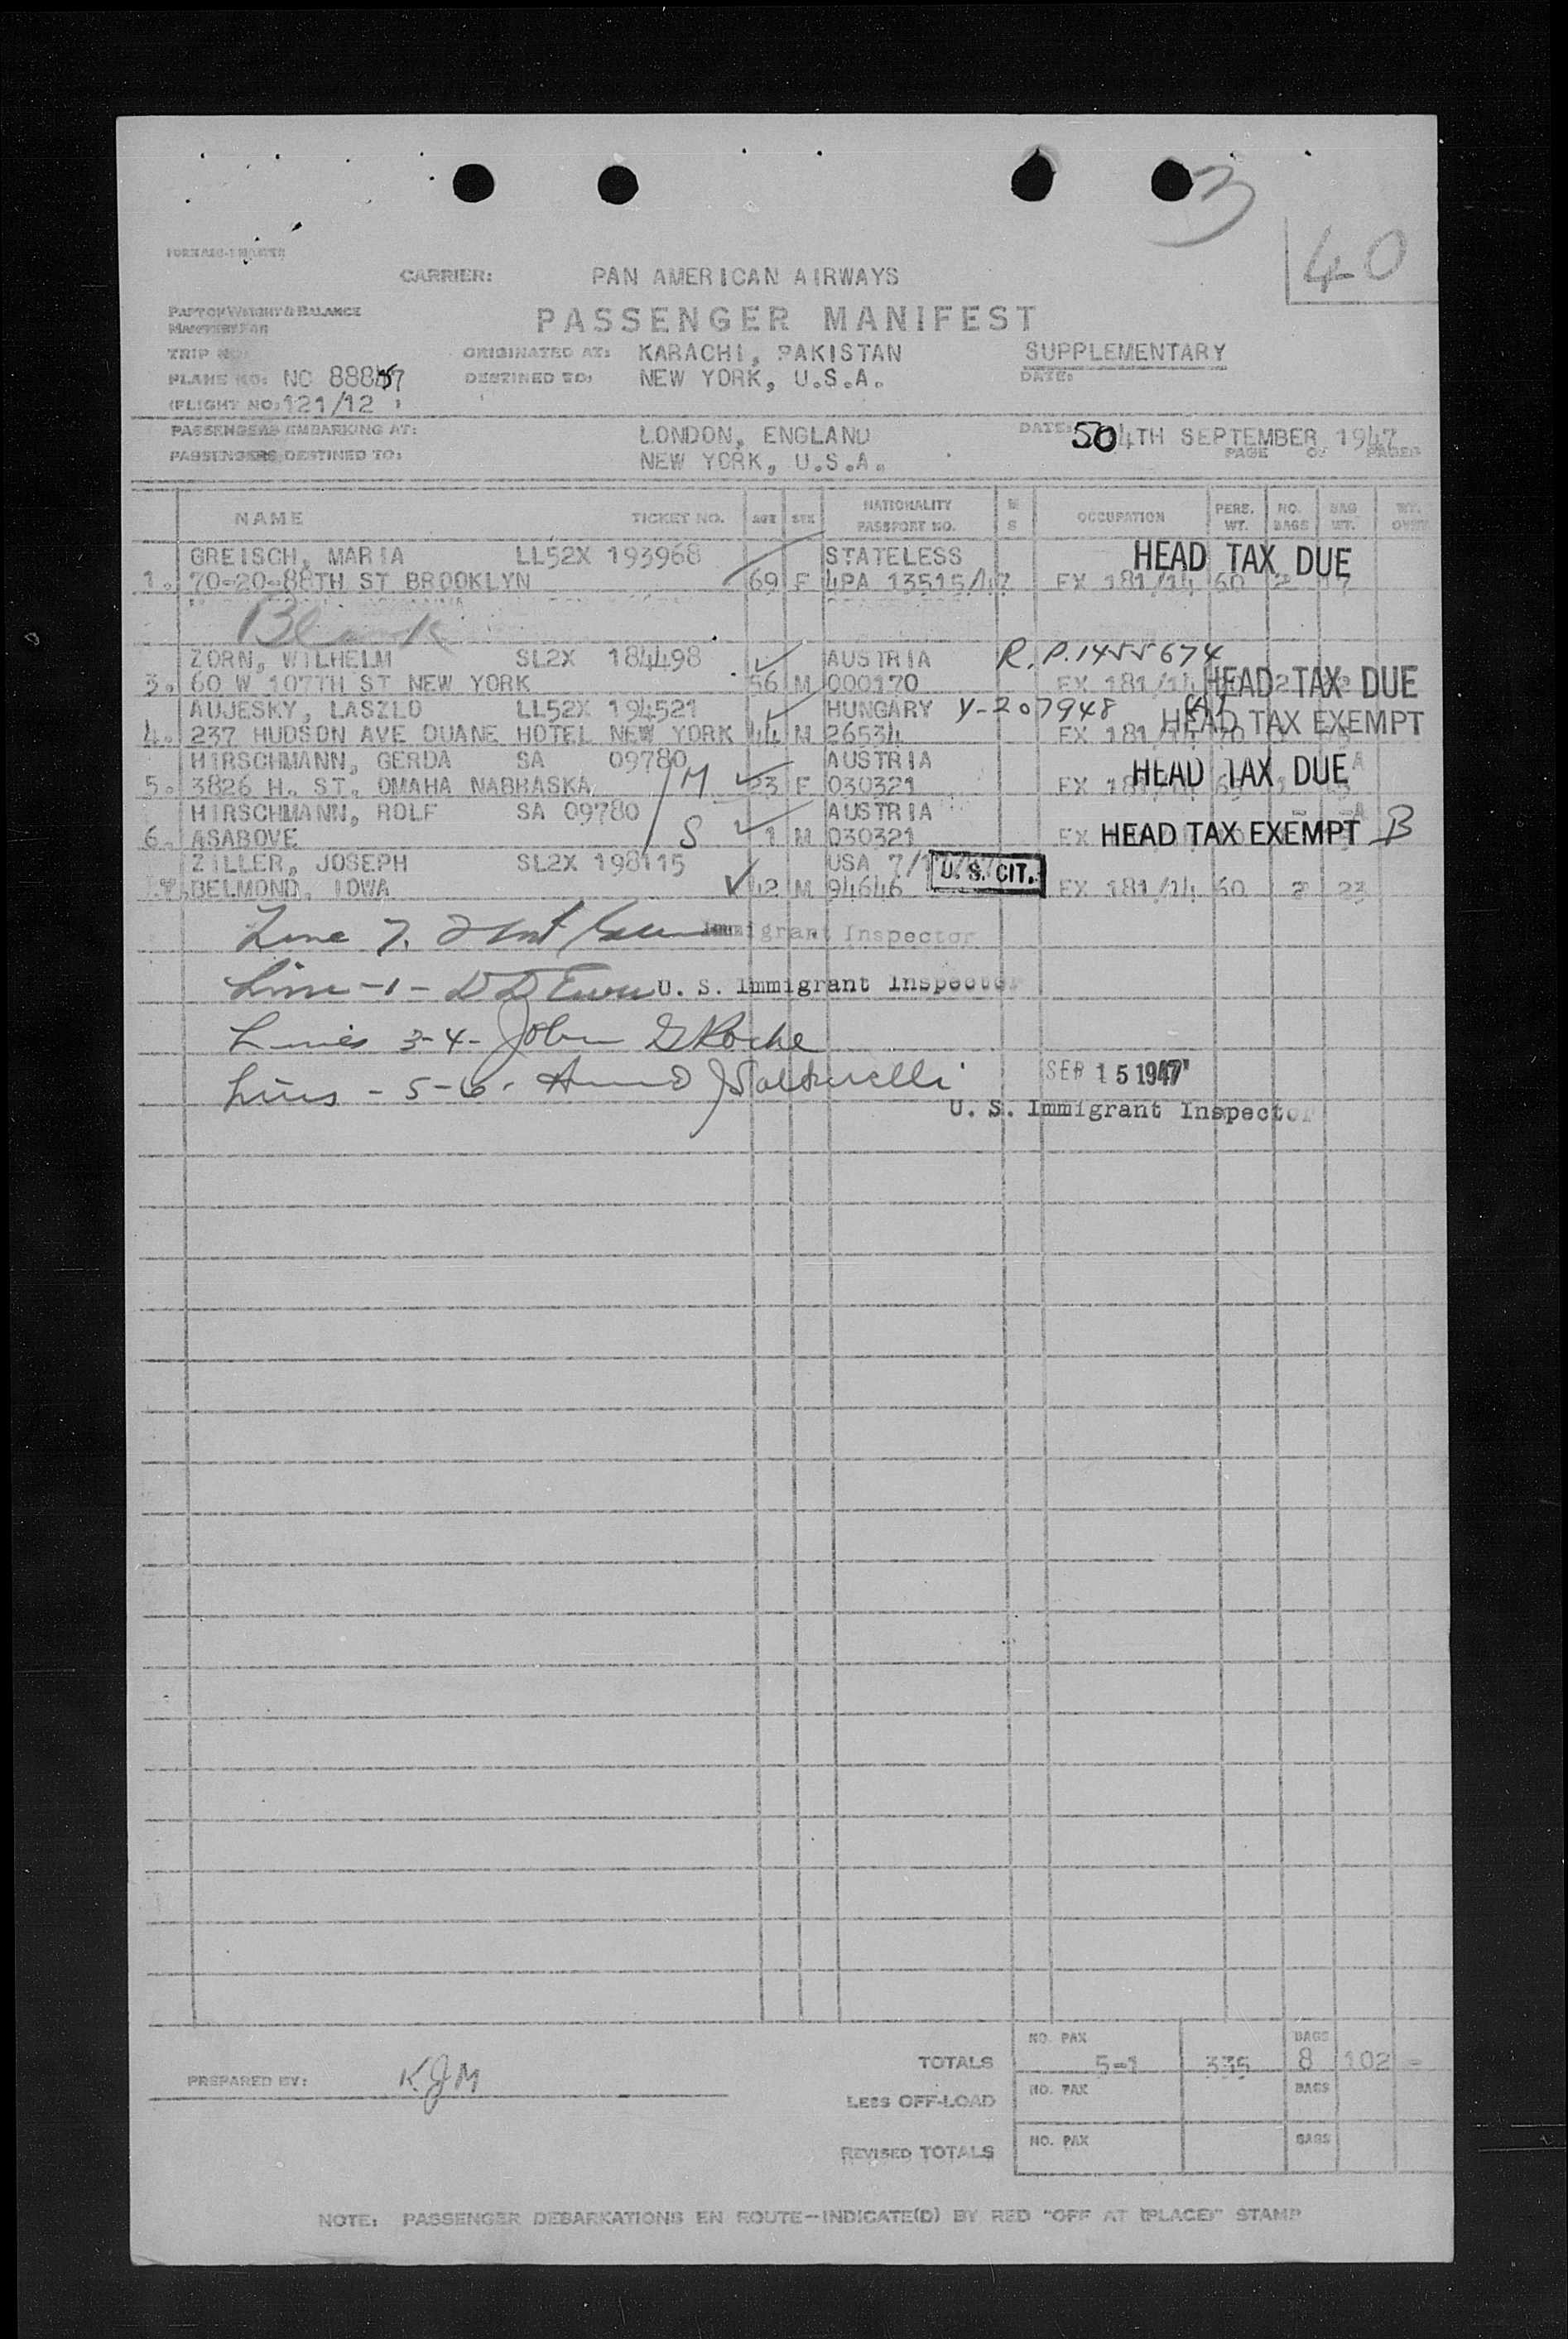 3
40
CARRIER: PAN AMERICAN AIRWAYS
PART OF WEIGHT & BALANCE
MANIFEST FOR
PASSENGER MANIFEST
TRIP NO. ORIGINATED AT: KARACHI, PAKISTAN SUPPLEMENTARY
PLANE NO: NC 88857 DESTINED TO: NEW YORK, U.S.A. DATE:
(FLIGHT NO: 121/12 )
PASSENGERS EMBARKING AT: LONDON, ENGLAND DATE: 14TH SEPTEMBER 1947
PASSENGERS DESTINED TO: NEW YORK, U.S.A. PAGE OF PAGES
NAME TICKET NO. AGE SEX NATIONALITY PASSPORT NO. M S OCCUPATION PERS. WT. NO. BAGS BAG WT. WT. OVER
GREISCH, MARIA LL52X 193968 STATELESS HEAD TAX DUE
1. 70-20-88TH ST BROOKLYN 69 F 4PA 13515/47 EX 181/14 60 2 17
Blank
ZORN, WILHELM SL2X 184498 AUSTRIA R.P. 1455674
3. 60 W 107TH ST NEW YORK 56 M 000170 EX 181/14 HEAD TAX DUE
AUJESKY, LASZLO LL52X 194521 HUNGARY V-207948 (A)
4. 237 HUDSON AVE DUANE HOTEL NEW YORK 44 M 26534 EX 181/14 HEAD TAX EXEMPT
HIRSCHMANN, GERDA SA 09780 AUSTRIA
5. 3826 H. ST. OMAHA NABRASKA M 23 F 030321 EX HEAD TAX DUE
HIRSCHMANN, ROLF SA 09780 AUSTRIA
6. ASABOVE S 1 M 030321 EX HEAD TAX EXEMPT B
ZILLER, JOSEPH SL2X 198115 USA U. S. CIT.
7. BELMOND, IOWA 42 M 94646 EX 181/14 60 2 23
Line 7. Immigrant Inspector
Line -1- U. S. Immigrant Inspector
Lines 3-4- John G Roche
Lines - 5-6. SEP 15 1947
U. S. Immigrant Inspector
TOTALS NO. PAX 5-1 335 BAGS 8 102 -
PREPARED BY: KJM
LESS OFF-LOAD NO. PAX BAGS
REVISED TOTALS NO. PAX BAGS
NOTE: PASSENGER DEBARKATIONS EN ROUTE—INDICATE(D) BY RED "OFF AT (PLACE)" STAMP